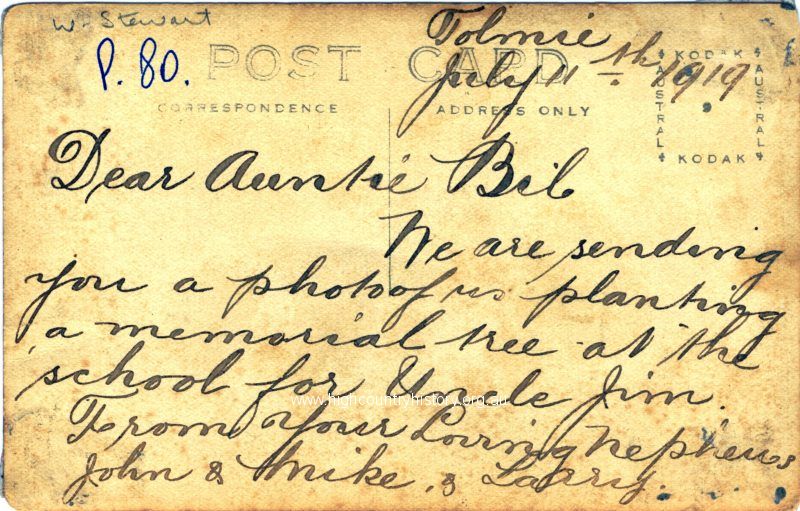 W. Stewart
P. 80.
POST CARD
Tolmie
July 11th 1919
CORRESPONDENCE
ADDRESS ONLY
KODAK
AUSTRAL
AUSTRAL
KODAK
Dear Auntie Bib
We are sending
you a photo of us planting
a memorial tree at the
school for Uncle Jim.
www.highcountryhistory.org.au
From Your Loving Nephews
John & Mike & Larry.